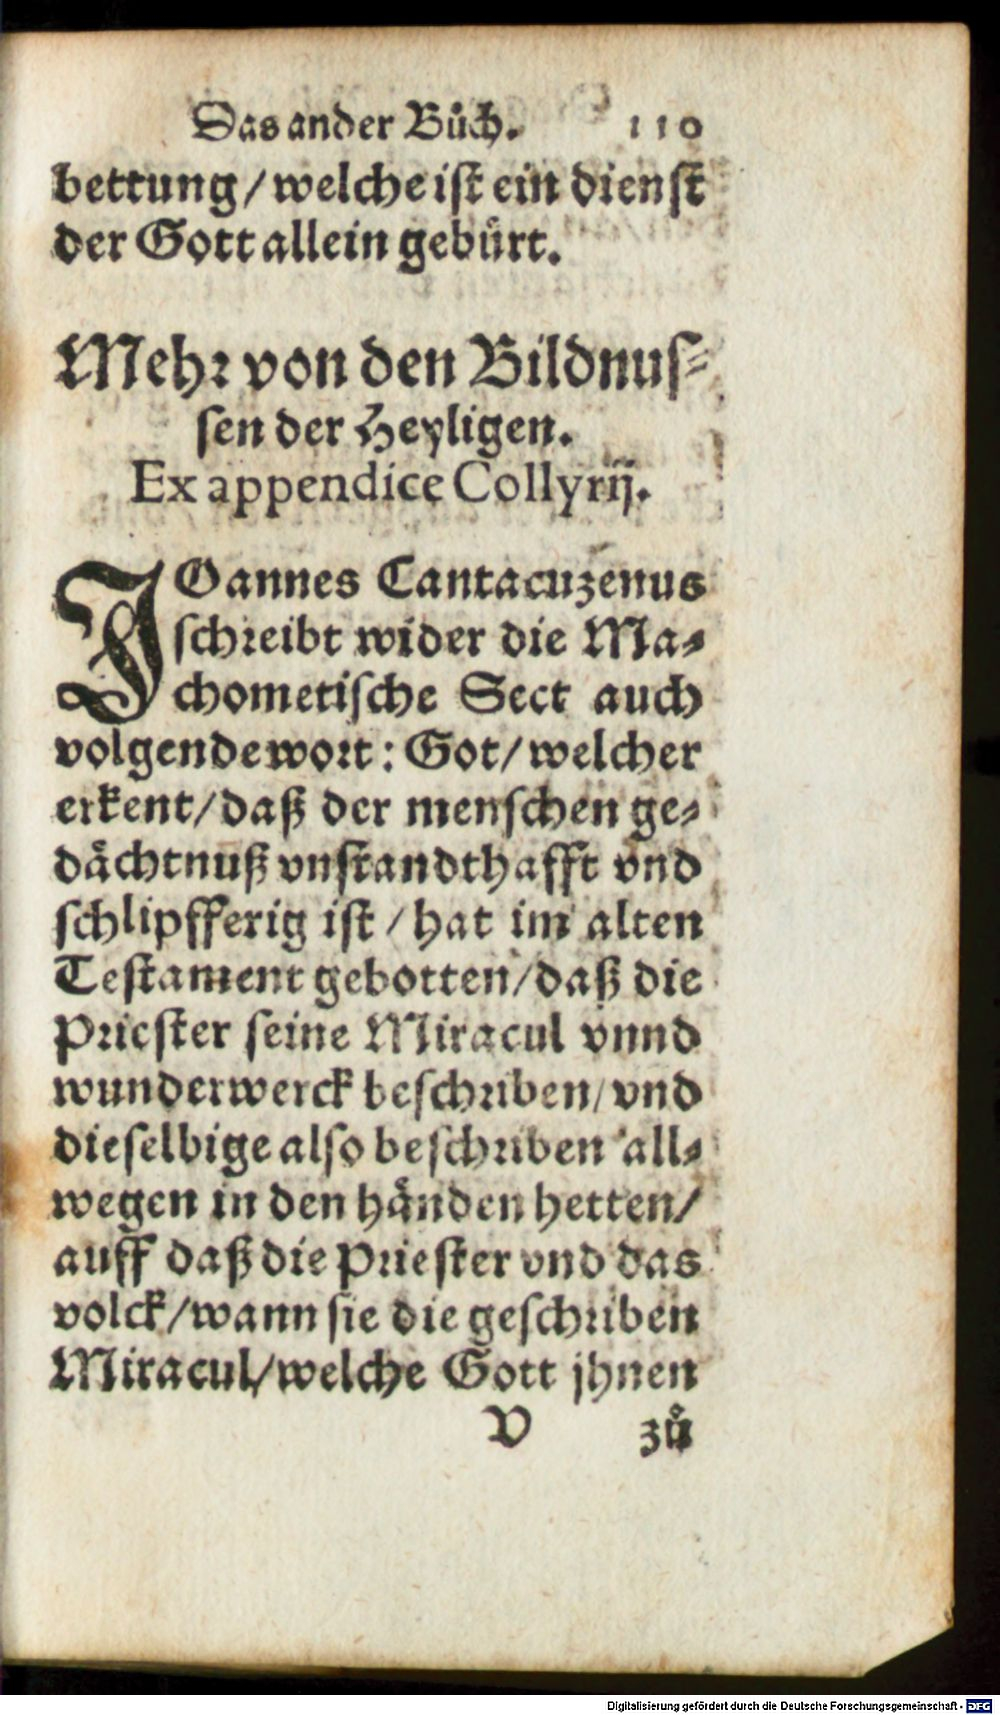 Das ander Bůch. 110
bettung / welche ist ein dienst
der Gott allein gebürt.
Mehr von den Bildnus-
sen der Heyligen.
Ex appendice Collyrij.
JOannes Cantacuzenus
schreibt wider die Ma-
chometische Sect auch
volgende wort: Got / welcher
erkent / daß der menschen ge-
dächtnuß vnstandthafft vnd
schlipfferig ist / hat im alten
Testament gebotten / daß die
Priester seine Miracul vnnd
wunderwerck beschriben / vnd
dieselbige also beschriben all-
wegen in den händen hetten /
auff daß die Priester vnd das
volck / wann sie die geschriben
Miracul / welche Gott jhnen
V zů
Digitalisierung gefördert durch die Deutsche Forschungsgemeinschaft - DFG